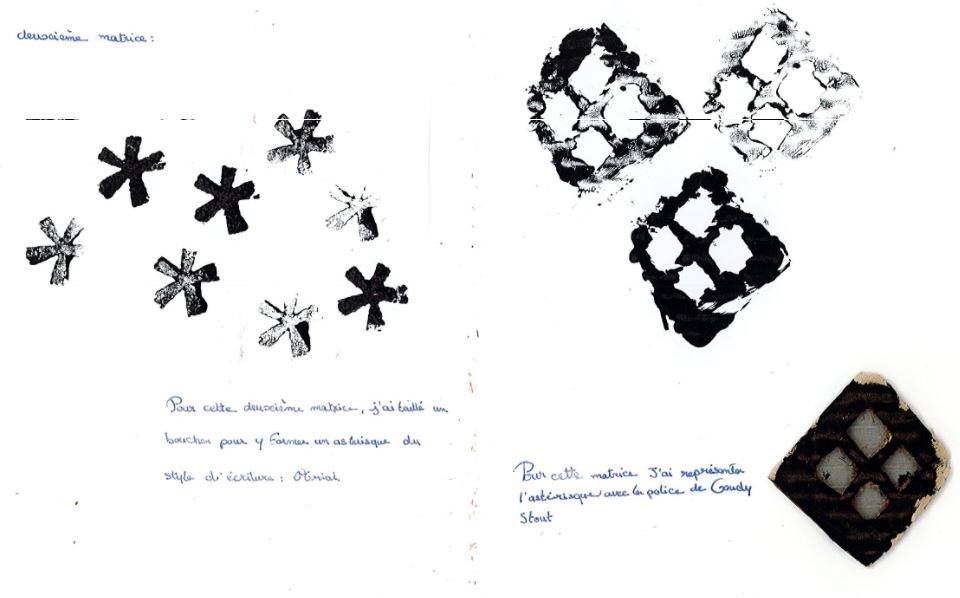 deuxième matrice :
Pour cette deuxième matrice, j'ai taillé un
bouchon pour y former un astérisque du
style d'écriture : Arial
Pour cette matrice J'ai représenté
l'astérisque avec la police de Goudy
Stout